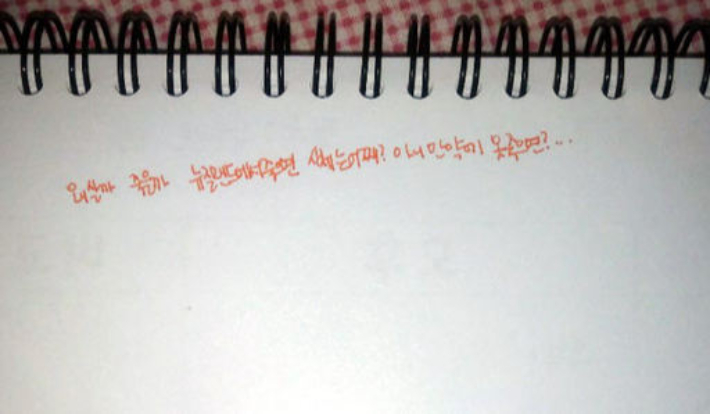 왜살까 죽을까 뉴질랜드에서죽으면 시체는어째? 아니 만약에 못죽으면?...